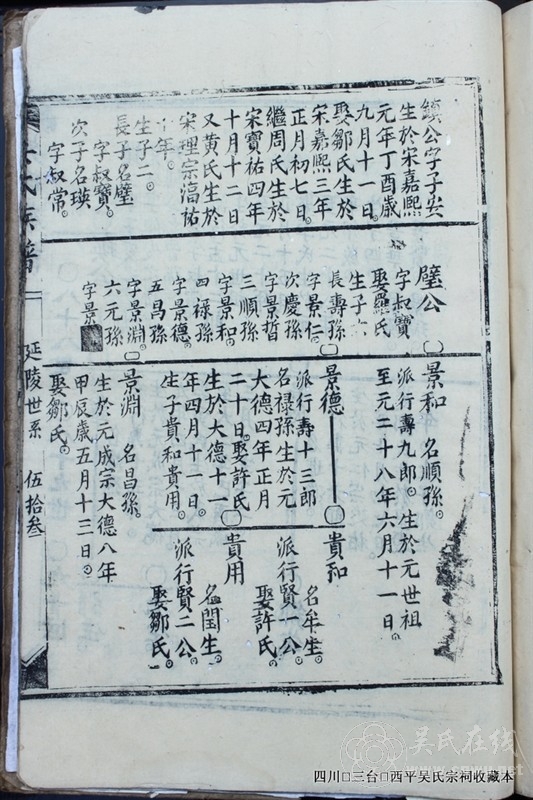 鎮公字子安
生於宋嘉熙
元年丁酉歲
九月十一日。
娶鄒氏生於
宋嘉熙三年
正月初七日。
繼周氏生於
宋寶祐四年
十月十二日
又黃氏生於
宋理宗淳祐
十年。
生子二。
長子名璧
字叔寶。
次子名瑛
字叔常。
璧公
字叔寶
娶羅氏
生子六
長壽孫
字景仁。
次慶孫
字景哲
三順孫
字景和。
四祿孫
字景德。
五昌孫
字景淵。
六元孫
字景
景和 名順孫。
派行壽九郎。生於元世祖
至元二十八年六月十一日。
景德
派行壽十三郎
名祿孫生於元
大德四年正月
二十日。娶許氏
生於大德十一
年四月十一日。
生子貴和貴用。
景淵 名昌孫。
生於元成宗大德八年
甲辰歲五月十三日。
娶鄒氏。
貴和
名牟生。
派行賢一公。
娶許氏。
貴用
名閏生。
派行賢二公。
娶鄒氏。
氏族譜
延陵世系 伍拾叁
吴氏在线
www.cnwu.net
四川□三台□西平吴氏宗祠收藏本